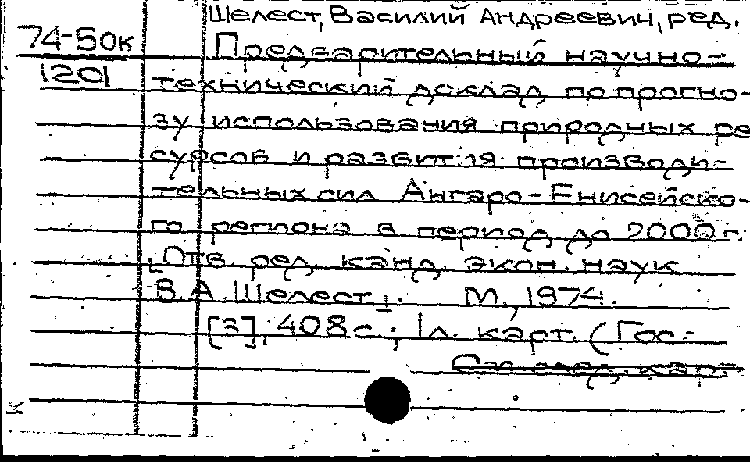 Шелест, Василий Андреевич, ред.
74-50к
1201
Предварительный научно-
технический доклад по прогно-
зу использования природных ре
сурсов и развития производи-
тельных сил Ангаро-Енисейско-
го региона в период до 2000 г.
[Отв. ред. канд. экон. наук
В.А. Шелест]. М., 1974.
[3], 408 с.; 1 л. карт. (Гос-
См. след. карт